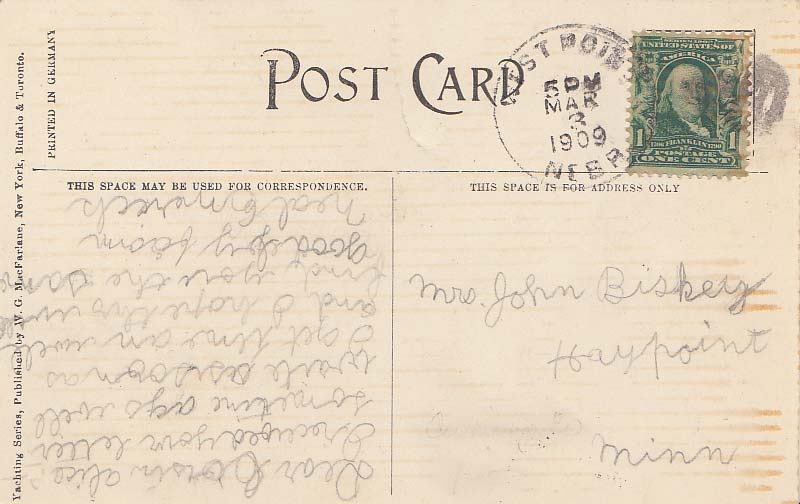 POST CARD
WEST POINT
5 PM
MAR
3
1909
NEBR.
SERIES 1902
UNITED STATES OF
AMERICA
1 1706 FRANKLIN 1790 1
POSTAGE
ONE CENT
PRINTED IN GERMANY
Yachting Series, Published by W. G. MacFarlane, New York, Buffalo & Toronto.
THIS SPACE MAY BE USED FOR CORRESPONDENCE.
THIS SPACE IS FOR ADDRESS ONLY
Dear Cousin Alice
I received your letter
sometime ago will
write as soon as
I get time am well
and I hope this will
find you the same
goodby from
Neal
Mrs. John Biskey
Haypoint
Minn